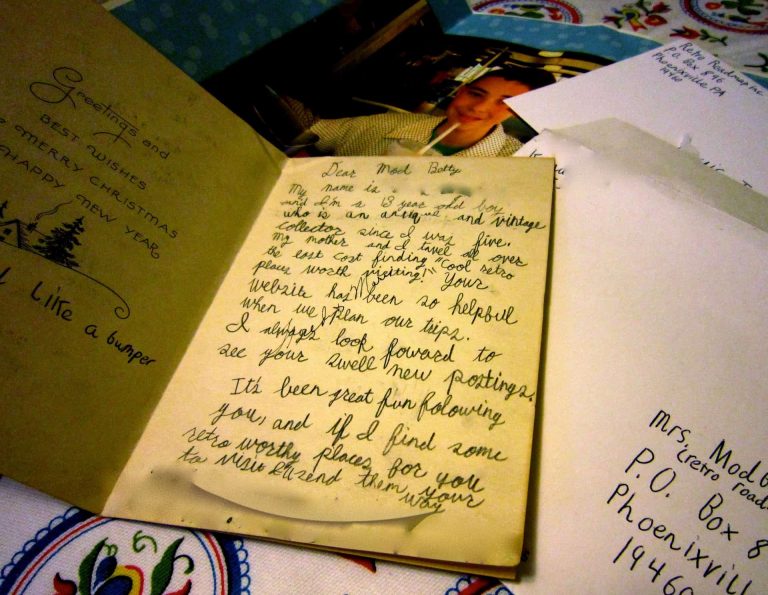 Greetings and
BEST WISHES
MERRY CHRISTMAS
HAPPY NEW YEAR
Like a bumper
Dear Mod Betty
My name is
and I'm a 13 year old boy
who is an antique and vintage
collector since I was five.
My mother and I tavel all over
the east cost finding "Cool retro
places worth visiting!" Your
website has been so helpful
when we plan our trips.
I always look foward to
see your swell new postings.
It's been great fun folowing
you, and if I find some
retro worthy places for you
to visit I'll send them your
way
Retro Roadmap
P.O. Box 846
Phoenixville
PA
19460
Mrs. Modb
(retro road
P.O. Box 8
Phoenixvill
19460